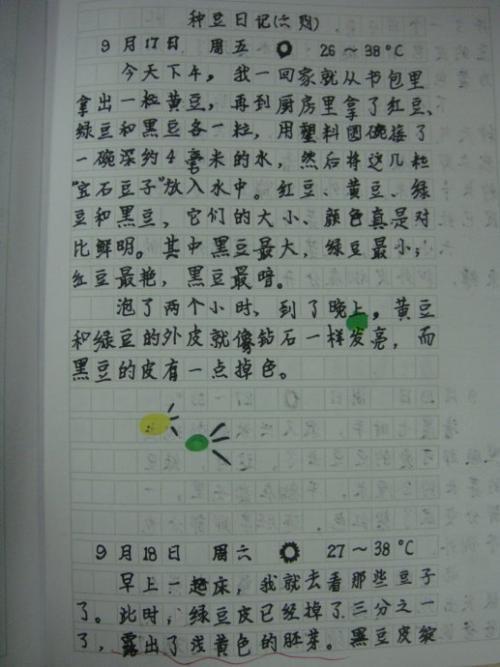 种豆日记(六则)
9月17日 周五 26～38°C
今天下午，我一回家就从书包里
拿出一粒黄豆，再到厨房里拿了红豆、
绿豆和黑豆各一粒，用塑料圆碗接了
一碗深约4毫米的水，然后将这几粒
“宝石豆子”放入水中。红豆、黄豆、绿
豆和黑豆，它们的大小、颜色真是对
比鲜明。其中黑豆最大，绿豆最小；
红豆最艳，黑豆最暗。
泡了两个小时，到了晚上，黄豆
和绿豆的外皮就像钻石一样发亮，而
黑豆的皮有一点掉色。
9月18日 周六 27～38°C
早上一起床，我就去看那些豆子
了。此时，绿豆皮已经掉了三分之一
了，露出了浅黄色的胚芽。黑豆皮绽